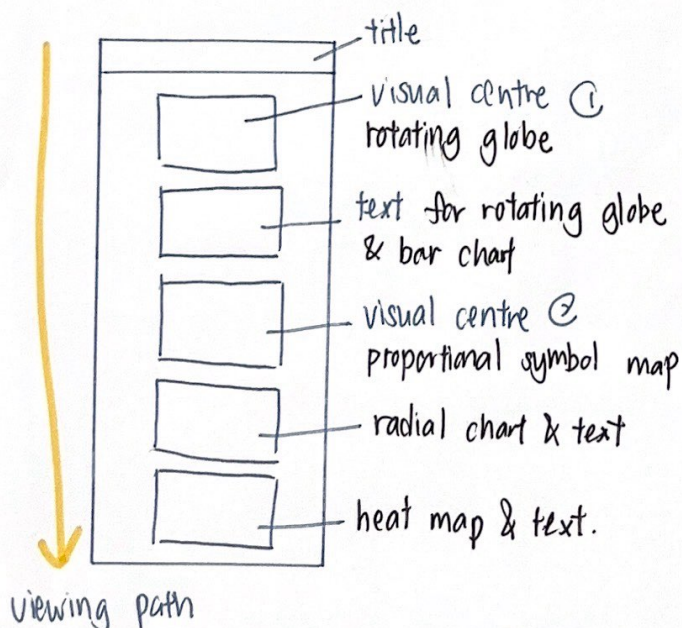 title
visual centre ①
rotating globe
text for rotating globe
& bar chart
visual centre ②
proportional symbol map
radial chart & text
heat map & text.
viewing path